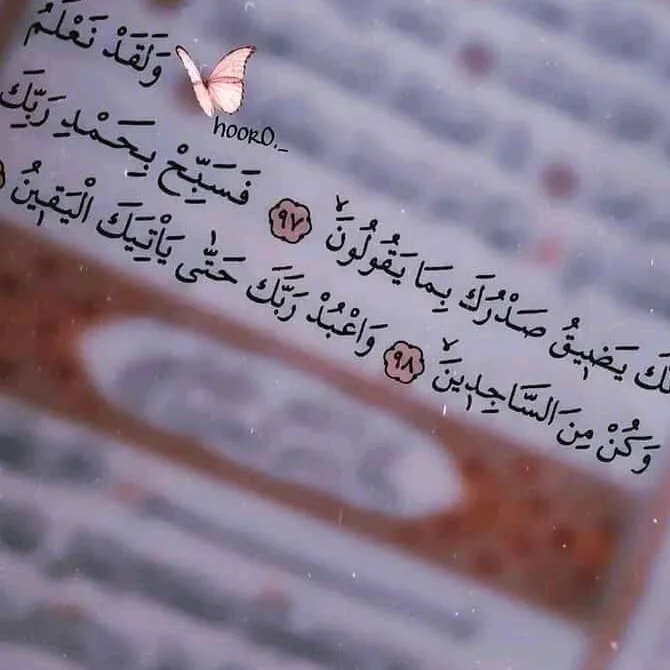 وَلَقَدْ نَعْلَمُ
hoorO._
نَّكَ يَضٖيقُ صَدْرُكَ بِمَا يَقُولُونَۙ ﴿٩٧﴾ فَسَبِّحْ بِحَمْدِ رَبِّكَ
وَكُنْ مِنَ السَّاجِدٖينَۙ ﴿٩٨﴾ وَاعْبُدْ رَبَّكَ حَتّٰى يَاْتِيَكَ الْيَقٖينُ